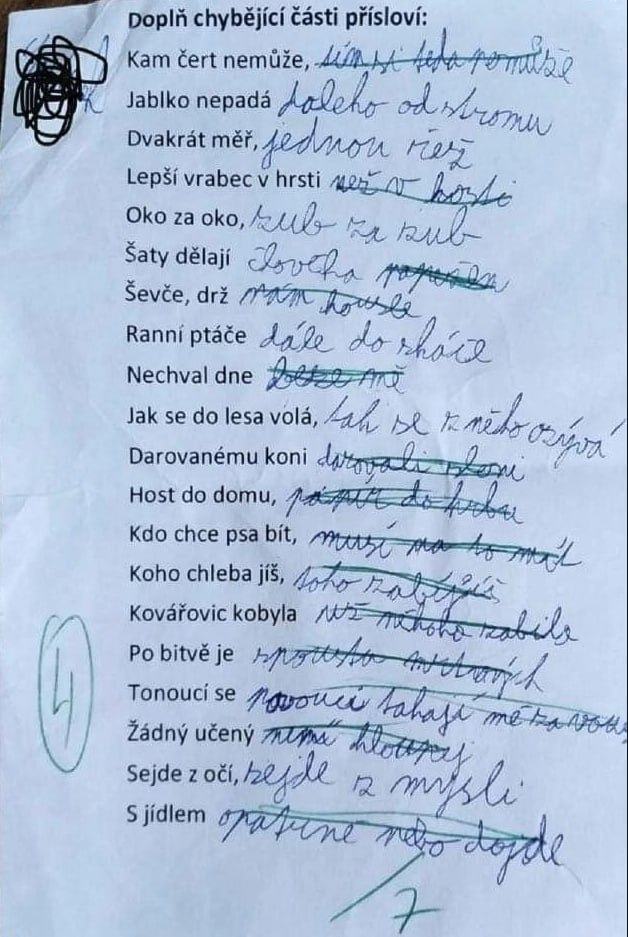 Doplň chybějící části přísloví:
Kam čert nemůže, tím si teda pomůže
Jablko nepadá daleko od stromu
Dvakrát měř, jednou řež
Lepší vrabec v hrsti než v kosti
Oko za oko, zub za zub
Šaty dělají člověka
Ševče, drž mám housle
Ranní ptáče dále do skáče
Nechval dne beze mě
Jak se do lesa volá, tak se z něho ozývá
Darovanému koni darovali sloni
Host do domu, papír do hrbu
Kdo chce psa bít, musí na to mít
Koho chleba jíš, toho zabíjíš
Kovářovic kobyla už někoho zabila
Po bitvě je spousta mrtvých
Tonoucí se tahají mě za vodu
Žádný učený nemá hloupej
Sejde z očí, sejde z mysli
S jídlem opatrně nebo dojde
4
/7